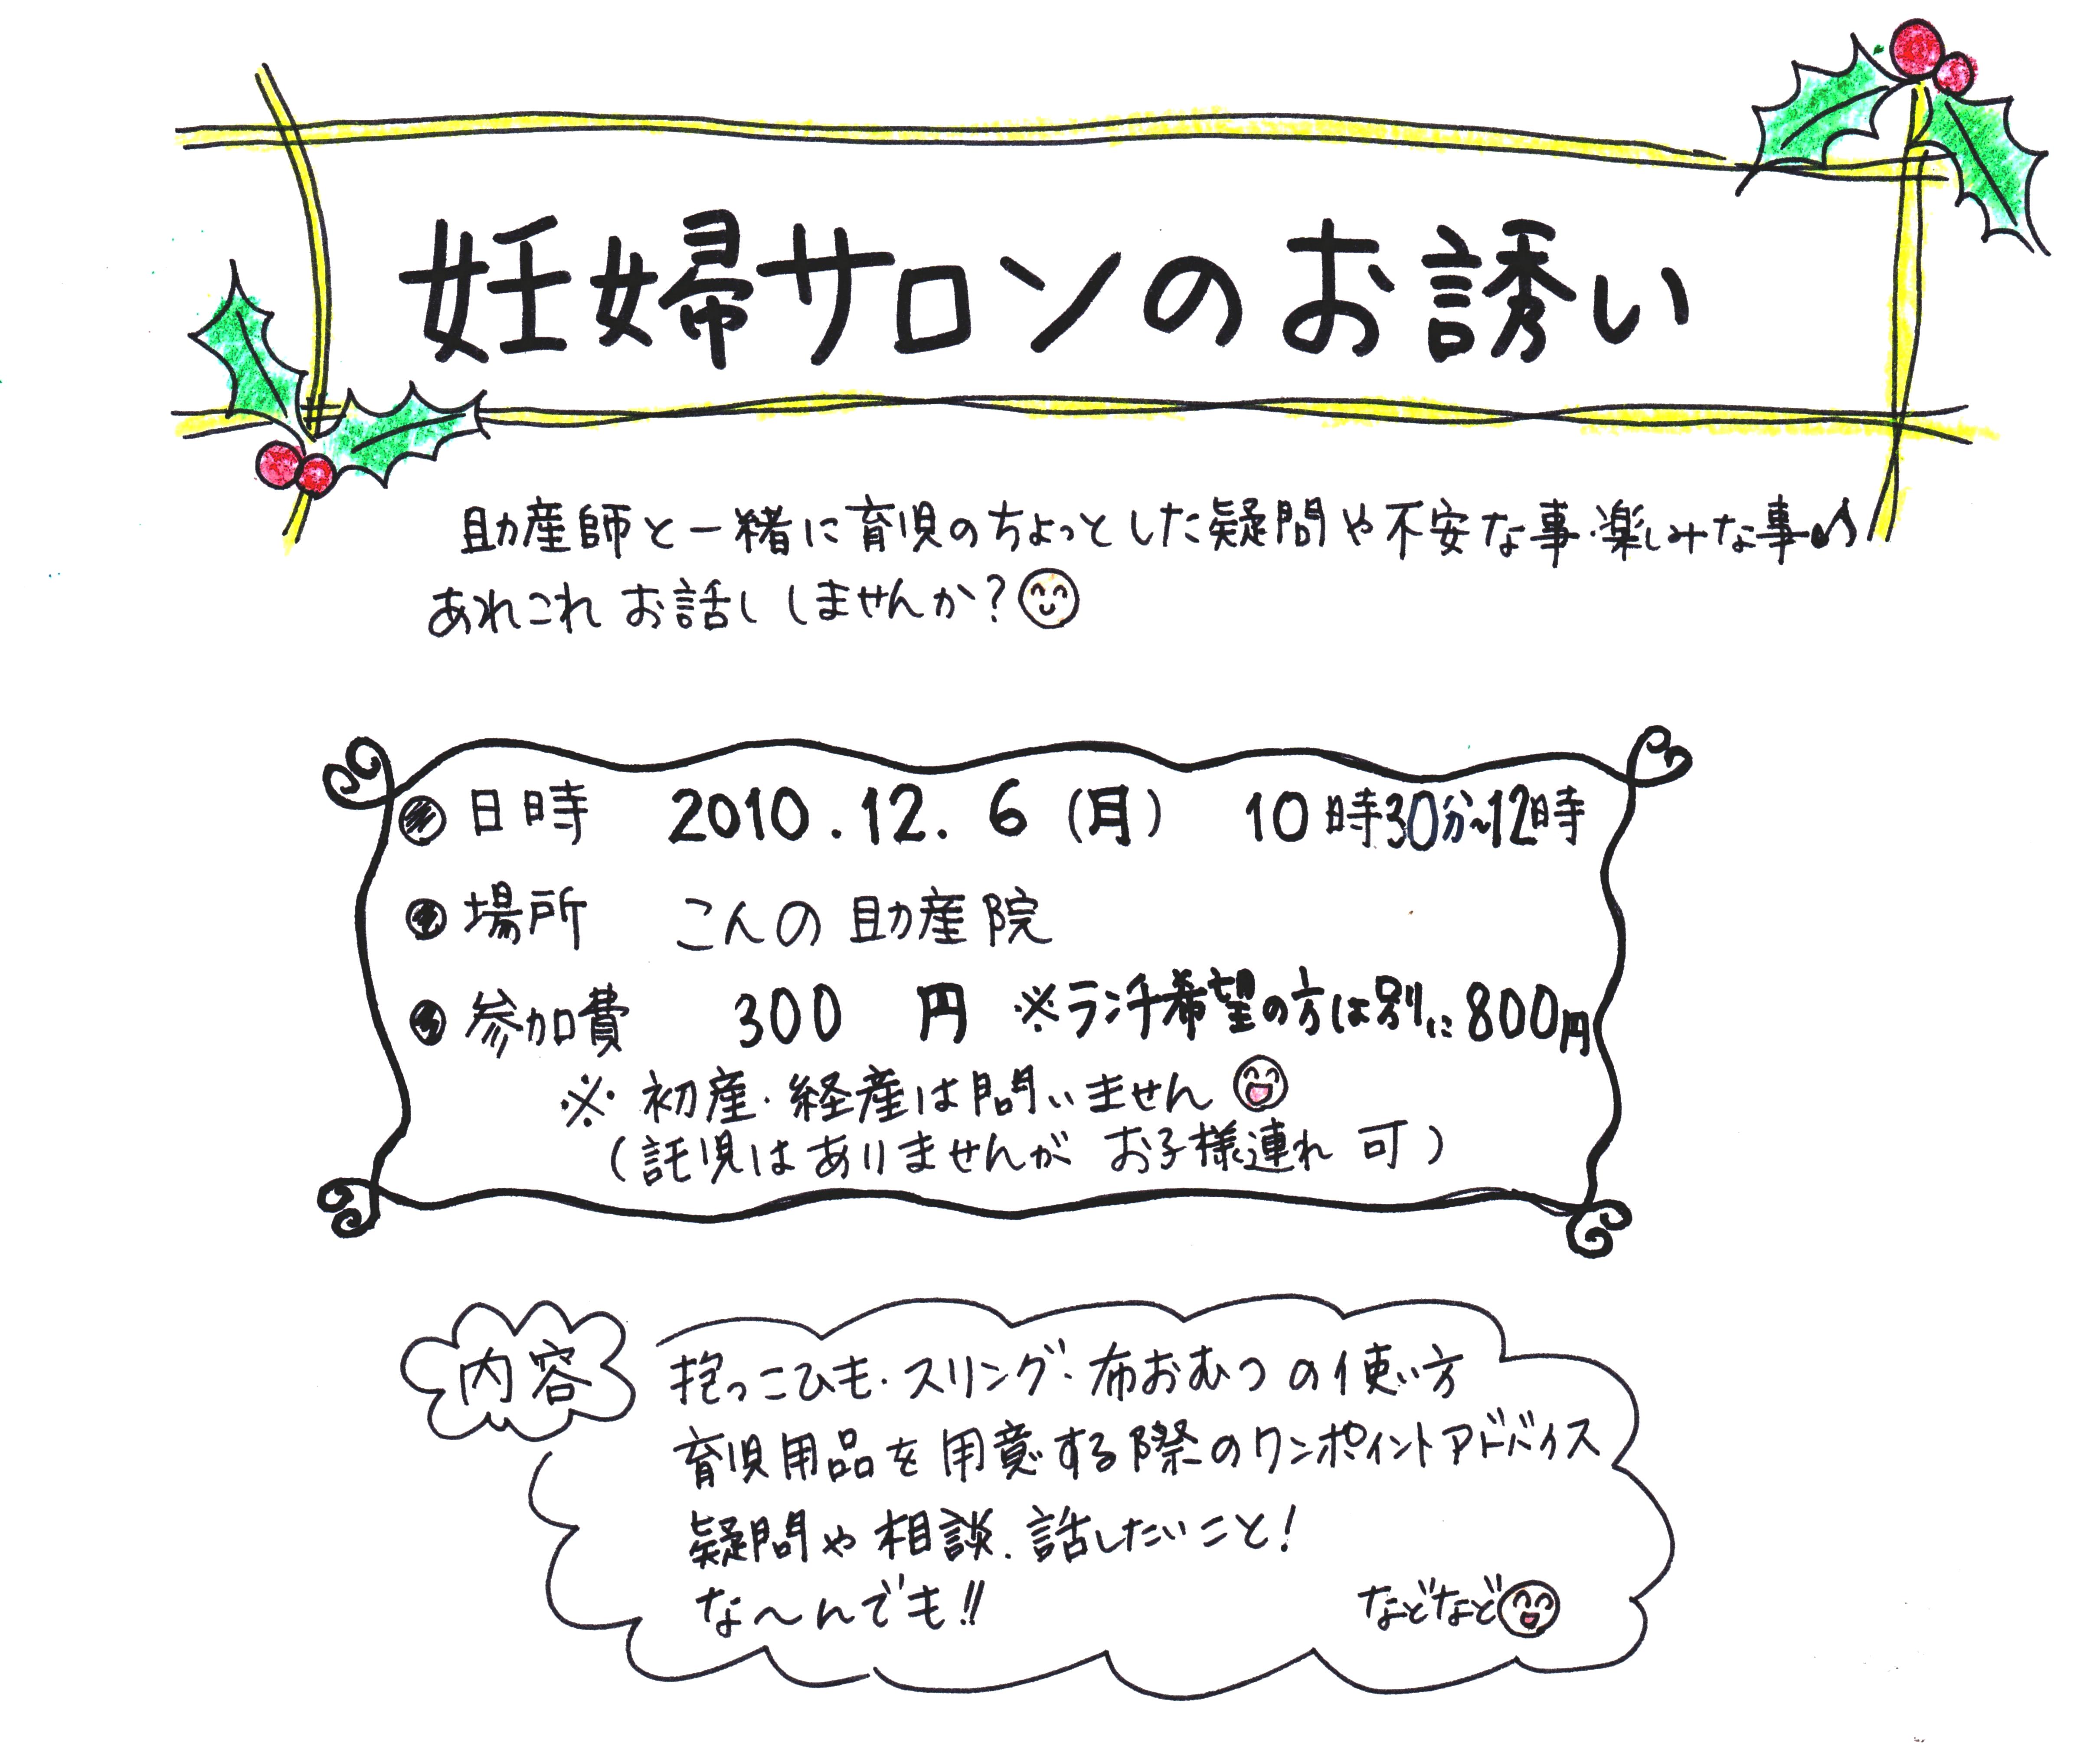 妊婦サロンのお誘い
助産師と一緒に育児のちょっとした疑問や不安な事・楽しみな事♪
あれこれ お話ししませんか?
日時 2010.12.6(月) 10時30分~12時
場所 こんの助産院
参加費 300円 ※ランチ希望の方は別に800円
※初産・経産は問いません
(託児はありませんが お子様連れ可)
内容
抱っこひも・スリング・布おむつの使い方
育児用品を用意する際のワンポイントアドバイス
疑問や相談.話したいこと!
な〜んでも!!
などなど